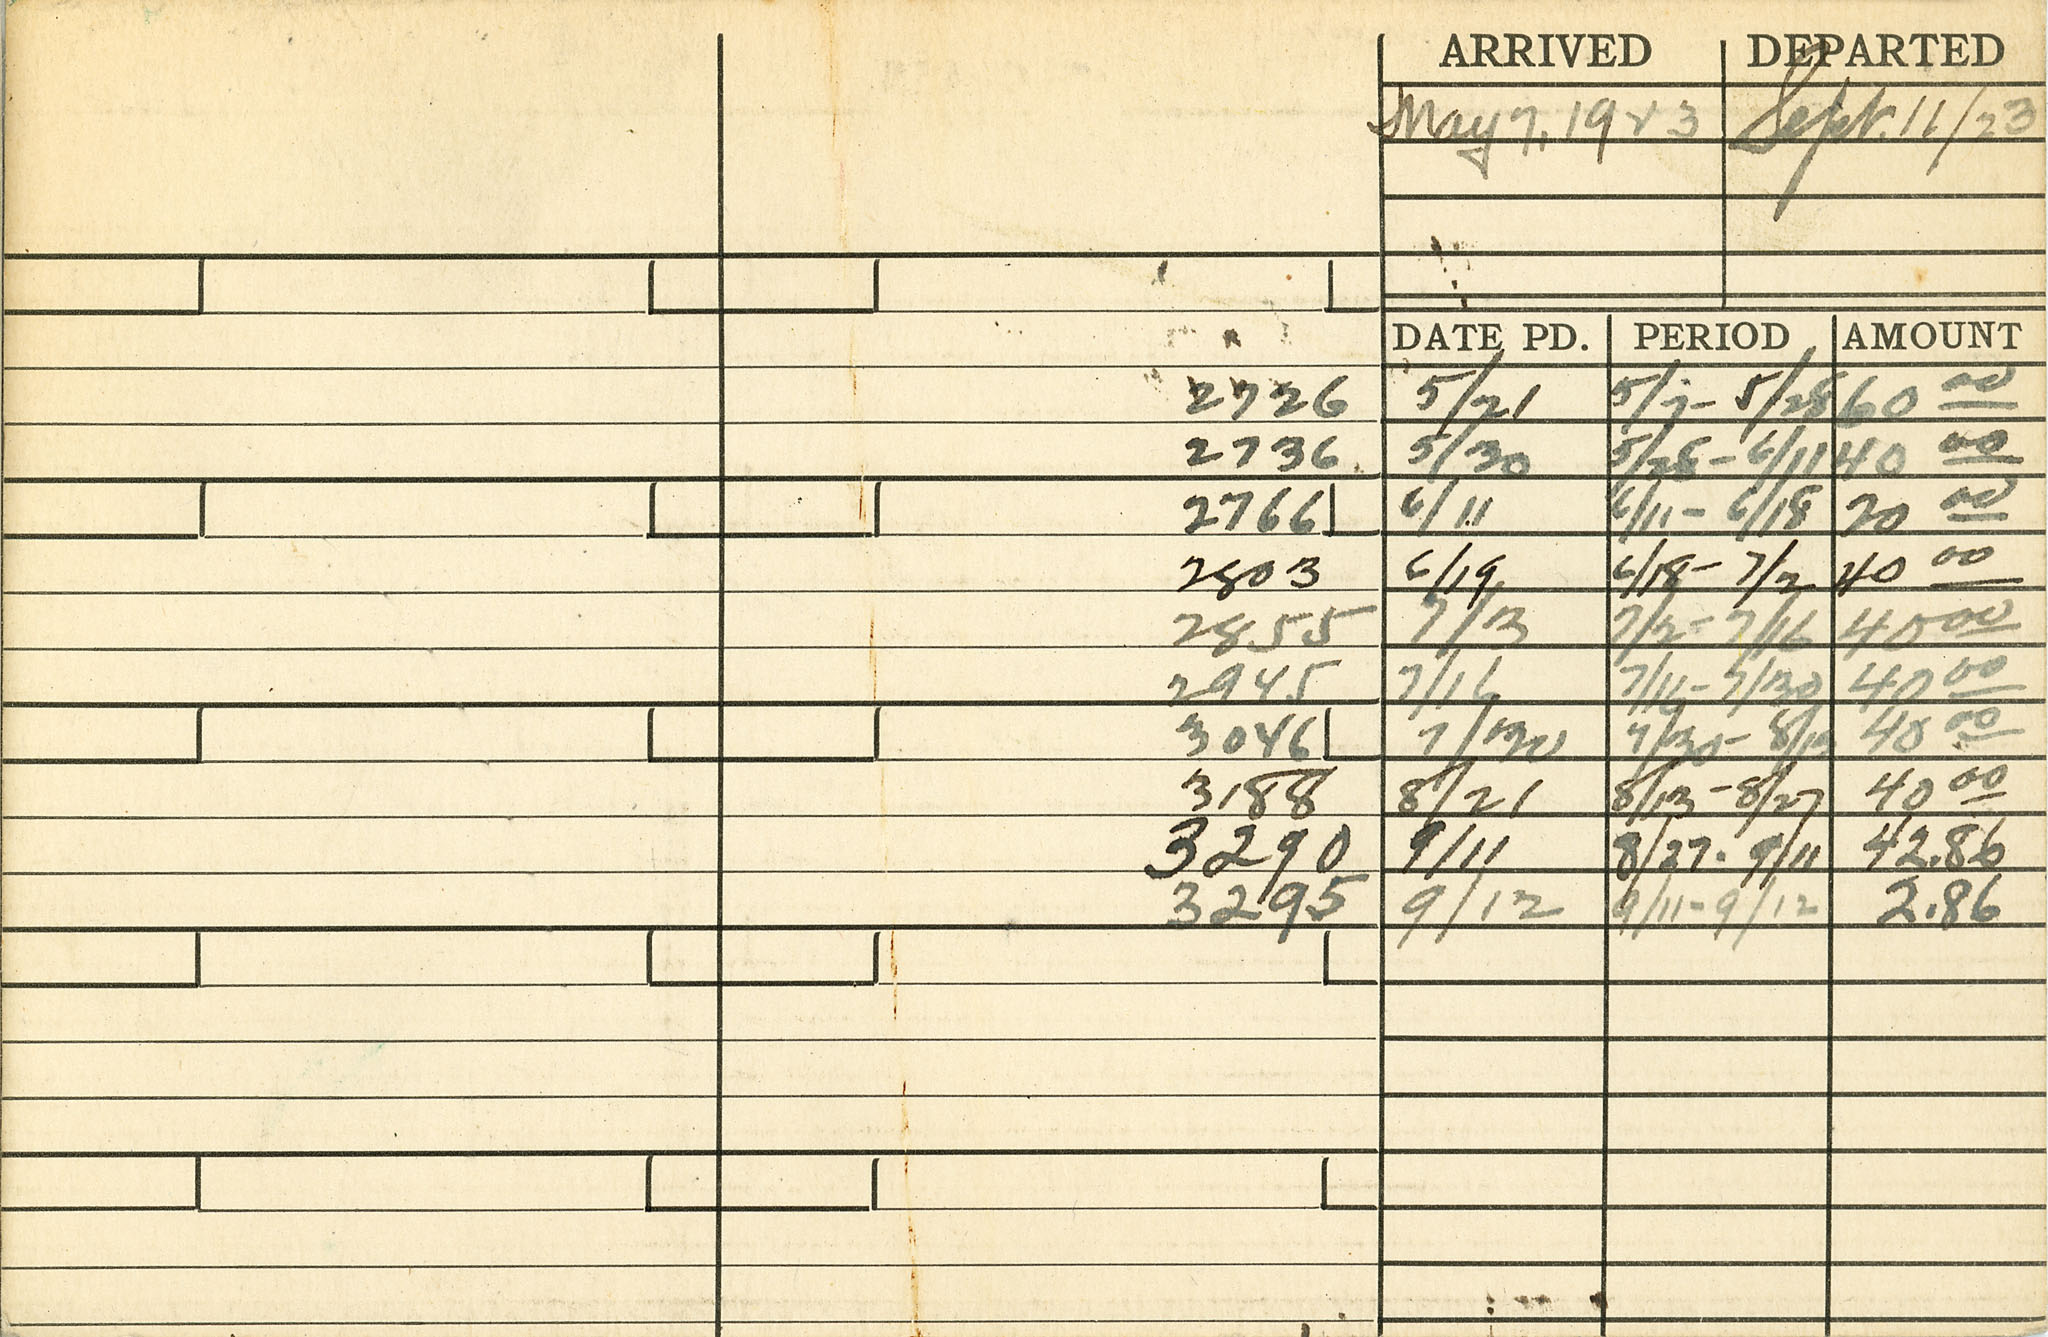 ARRIVED DEPARTED
May 7, 1923 Sept. 11/23
DATE PD. PERIOD AMOUNT
2726 5/21 5/7 - 5/28 60 00
2736 5/30 5/28 - 6/11 40 00
2766 6/11 6/11 - 6/18 20 00
2803 6/19 6/18 - 7/2 40 00
2855 7/3 7/2 - 7/16 40 00
2945 7/16 7/16 - 7/30 40 00
3046 7/30 7/30 - 8/13 40 00
3188 8/21 8/13 - 8/27 40 00
3290 9/11 8/27 - 9/11 42.86
3295 9/12 9/11 - 9/12 2.86